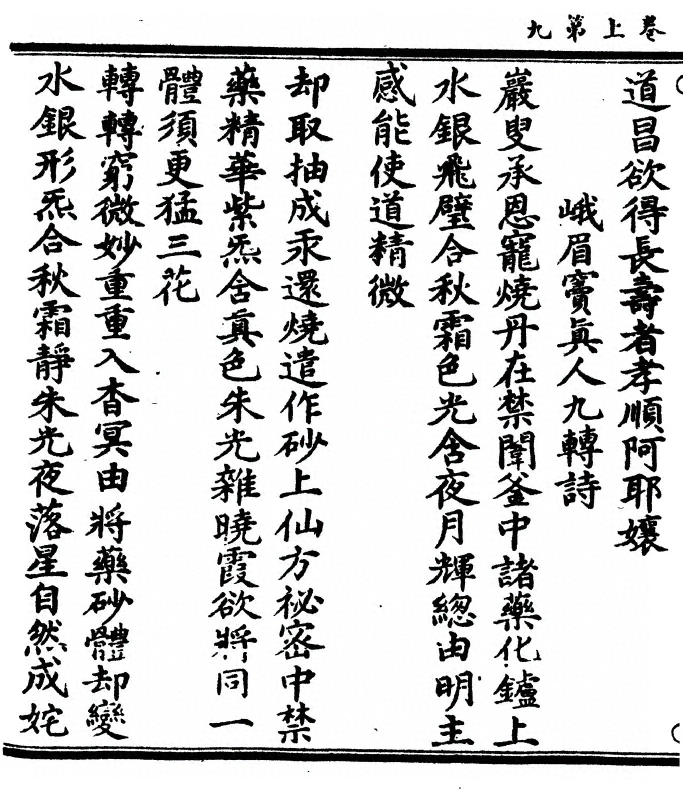 卷上第九
道昌欲得長壽者孝順阿耶孃
峨眉竇真人九轉詩
巖叟承恩寵燒丹在禁闈釜中諸藥化鑪上
水銀飛璧合秋霜色光含夜月輝緫由明主
感能使道精微
却取抽成汞還燒遣作砂上仙方祕密中禁
藥精華紫炁含真色朱光雜曉霞欲將同一
體須更猛三花
轉轉窮微妙重重入杳冥由將藥砂體却變
水銀形炁合秋霜靜朱光夜落星自然成姹